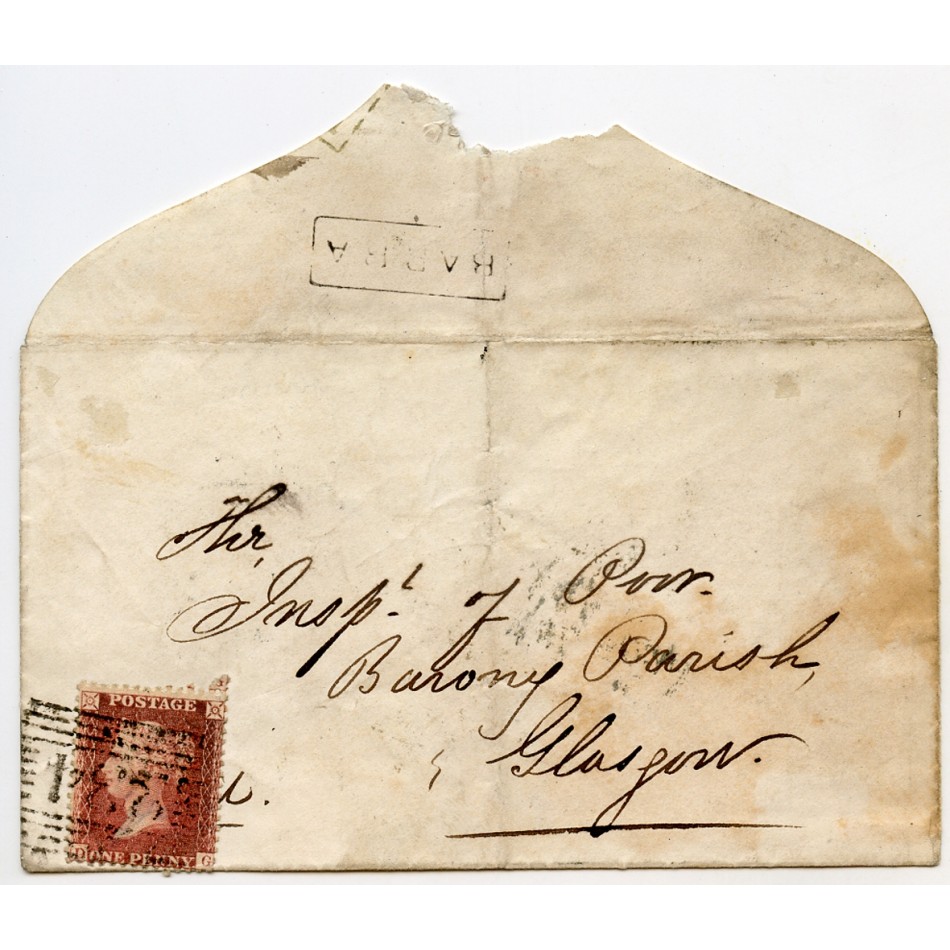 BARRA
The
Inspr. of Poor.
Barony Parish,
Glasgow.
POSTAGE
D ONE PENNY G